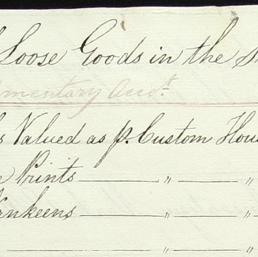 Loose Goods in the
mentary Acct.
Valued as p. Custom Hou
Prints — " — " —
ankeens — " — "
" "